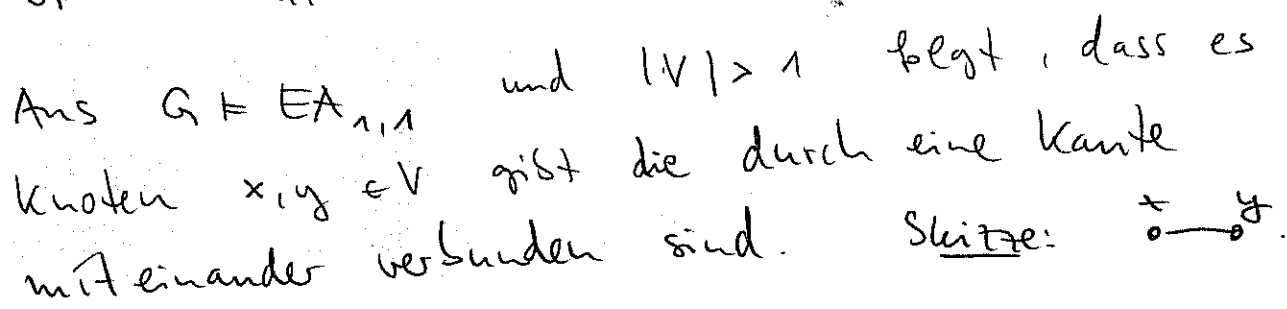 Aus G ⊨ EA₁,₁ und |V| > 1 folgt, dass es
Knoten x, y ∈ V gibt die durch eine Kante
miteinander verbunden sind. Skizze: x y .